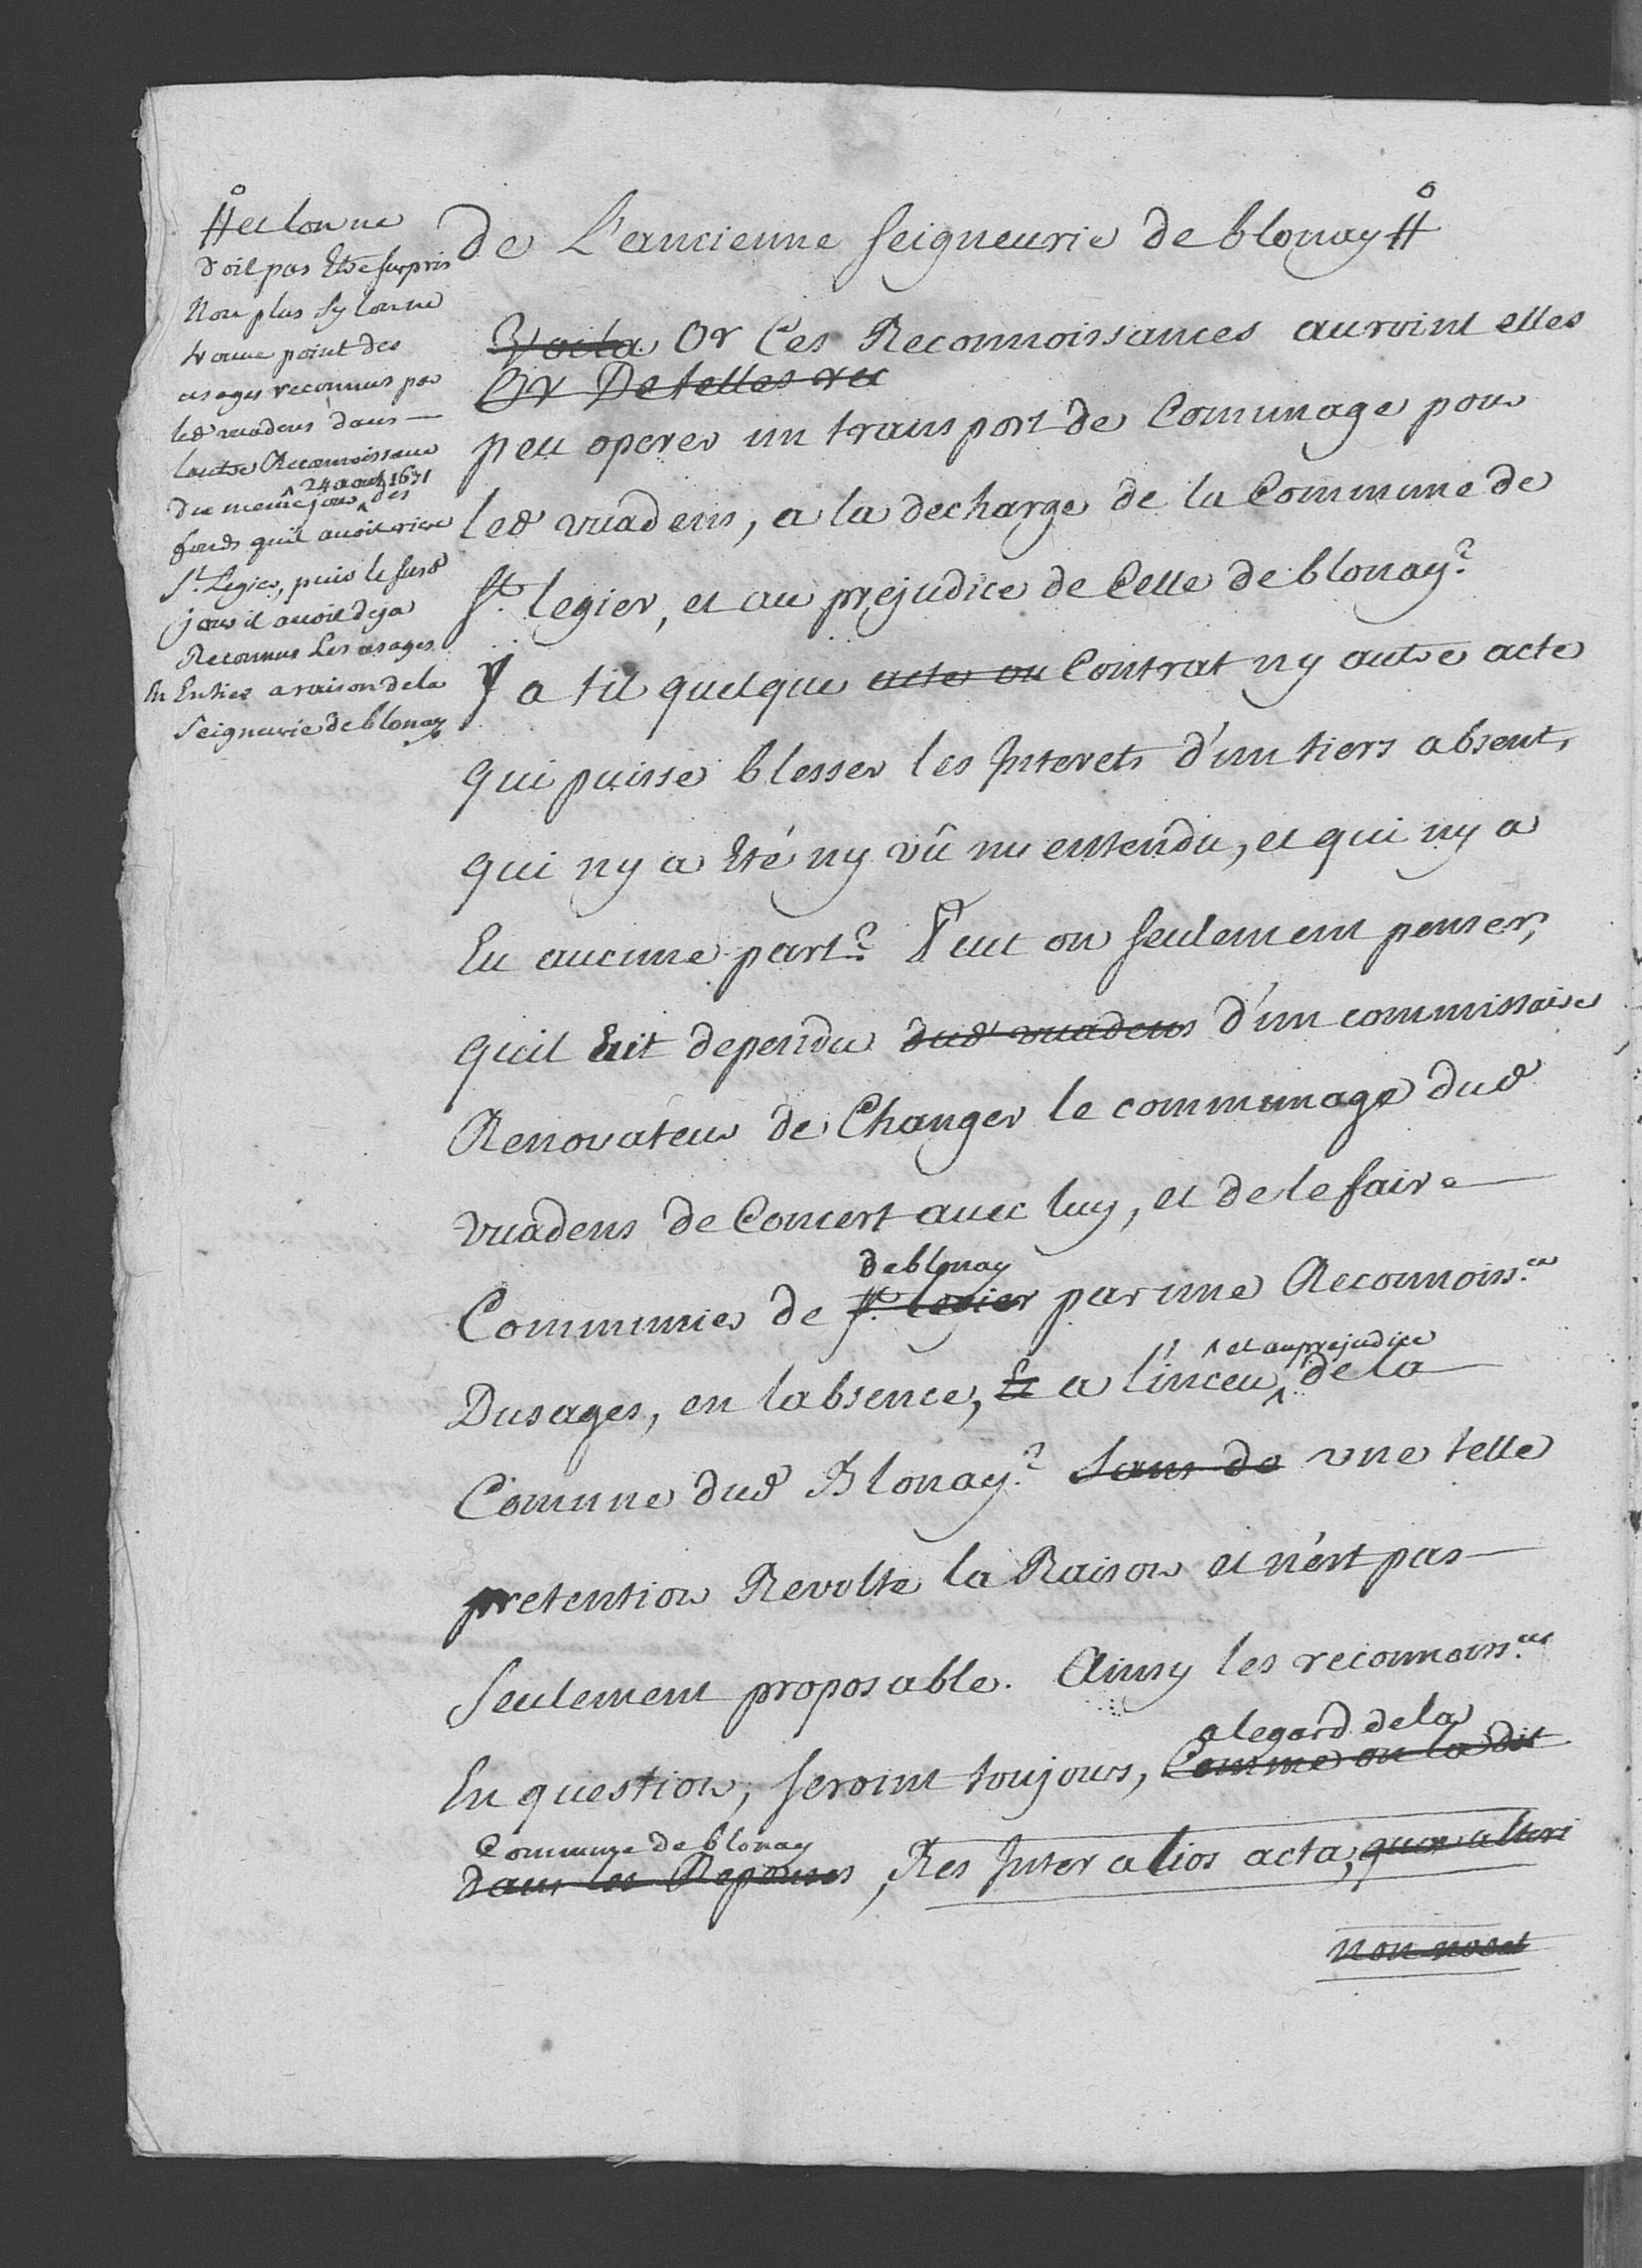 # et lon ne
doit pas Etre surpris
Non plus sy lon ne
trouve point des
usages reconnus par
led vuadens dans
lautre Reconnoissance
du meme jour ^ 24 aout 1671 des
fonds quil avoit riere
St. Legier, puis le susd
jour il avoit deja
Reconnus Les usages
En Entier a raison de la
Seigneurie de blonay
de L'ancienne seigneurie de blonay #
Voila Or Ces Reconnoissances auroint elles
Or De telles rec
peu operer un transport de Communage pour
led vuadens, a la decharge de la Commune de
St. legier, et au prejudice de Celle de blonay?
Y a til quelque acte ou Contrat ny autre acte
qui puisse blesser les Interets d'un tiers absent,
qui ny a Eté ny vû ny entendu, et qui ny a
Eu aucune part? Peut on seulement penser,
quil ait dependu dud vuadens d'un commissaire
Renovateur de Changer le communage dud
vuadens de Concert avec luy, et de le faire
de blonay
Communier de St. legier par une Reconnoiss.ce
^ et au prejudice
Dusages, en labsence, Et a l'inceu ^ de la
Comune dud Blonay? Sans do une telle
pretention Revolte la Raison et n'est pas
Seulement proposable. Ainsy les reconnoiss.ces
a legard de la
En question, seroint toujours, Comme on la dit
Commune de blonay
dans les Reponses, Res Inter alios acta, quæ alteri
non nocet